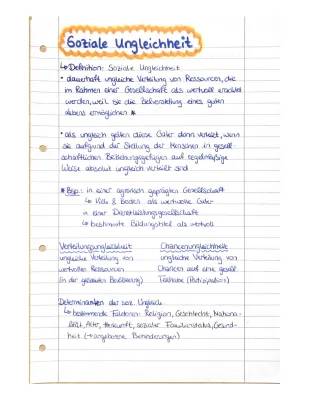 Soziale Ungleichheit
↳ Definition: Soziale Ungleichheit
• dauerhaft ungleiche Verteilung von Ressourcen, die
im Rahmen einer Gesellschaft als wertvoll erachtet
werden, weil sie die Bewerstellung eines guten
Lebens ermöglichen *
• als ungleich gelten diese Güter dann verteilt, wenn
sie aufgrund der Stellung der Menschen in gesell-
schaftlichen Beziehungsgefügen auf regelmäßige
Weise absolut ungleich verteilt sind
* Bsp.: in einer agrarisch geprägten Gesellschaft
↳ Vieh & Boden als wertvolle Güter
in einer Dienstleistungsgesellschaft
↳ bestimmte Bildungstitel als wertvoll
Verteilungsungleichheit
ungleiche Verteilung von
wertvollen Ressourcen
(in der gesamten Bevölkerung)
Chancenungleichheit
ungleiche Verteilung von
Chancen auf eine gesell.
Teilhabe (Partizipation)
Determinanten der soz. Ungleich.
↳ bestimmende Faktoren: Religion, Geschlecht, Nationa-
lität, Alter, Herkunft, sozialer Familienstatus, Gesund-
heit (→ angeborene Behinderungen)